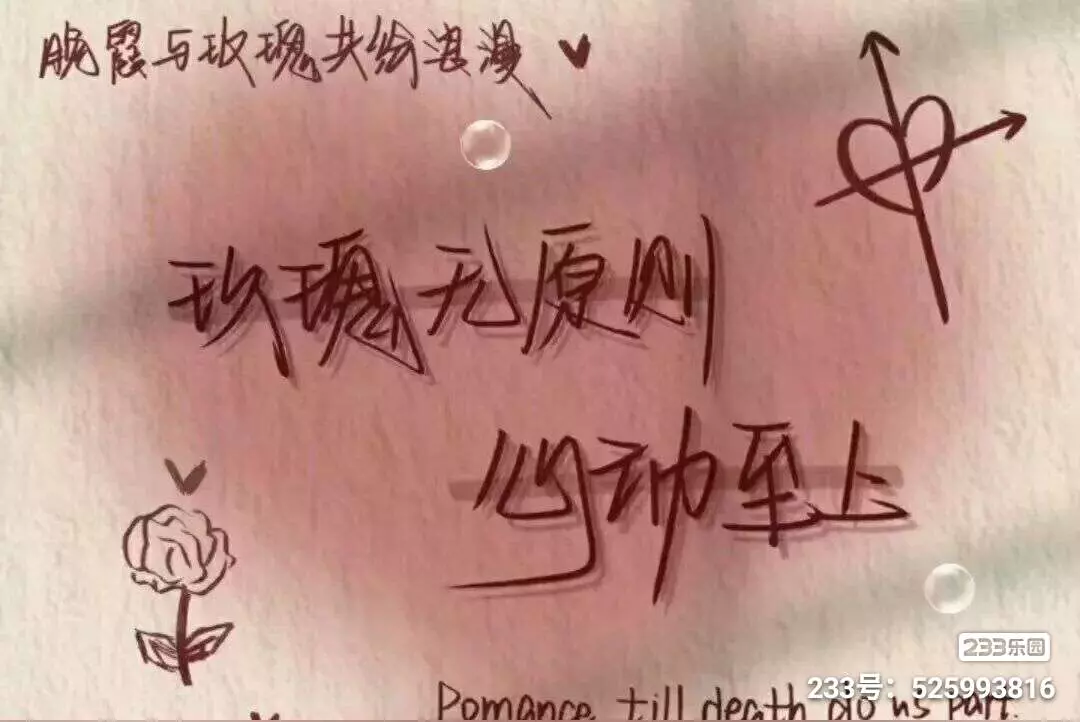 晚霞与玫瑰共绘浪漫
玫瑰无原则
心动至上
233乐园
233号：525993816
Pomance till death do us part.